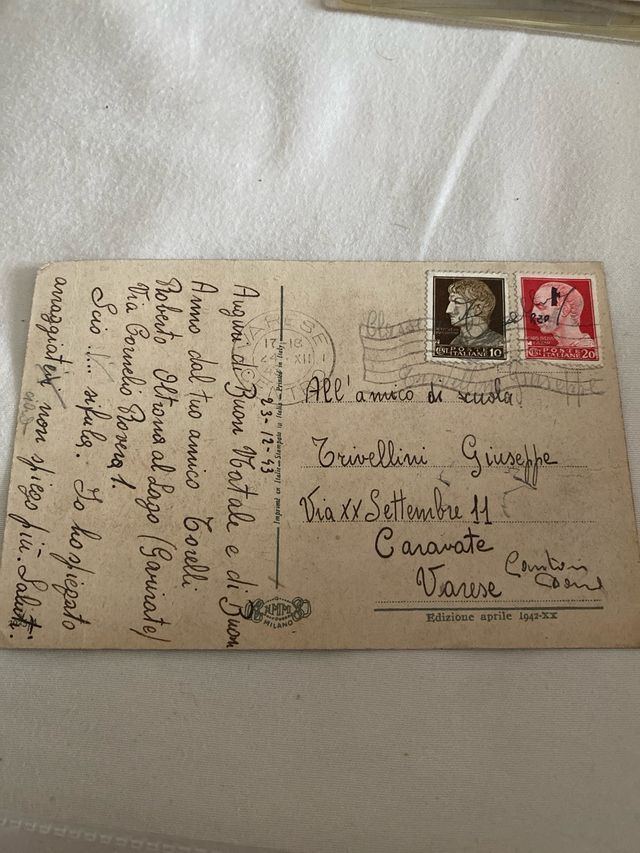 Auguri di Buon Natale e di Buon
Anno dal tuo amico Torelli
Roberto Oltrona al Lago (Gavirate)
Via Cornelio Rovera 1.
Scio ..... sifula. Io ho spiegato
arraggiatevi non spiego più. Saluti.
23-12-43
Imprimé en Italie - Stampato in Italia - Printed in Italy
MILANO
17-18
XII
POSTE
ITALIANE
10
POSTE
ITALIANE
20
All'amico di scuola
Trivellini Giuseppe
Via XX Settembre 11
Caravate
Varese
Edizione aprile 1942-XX